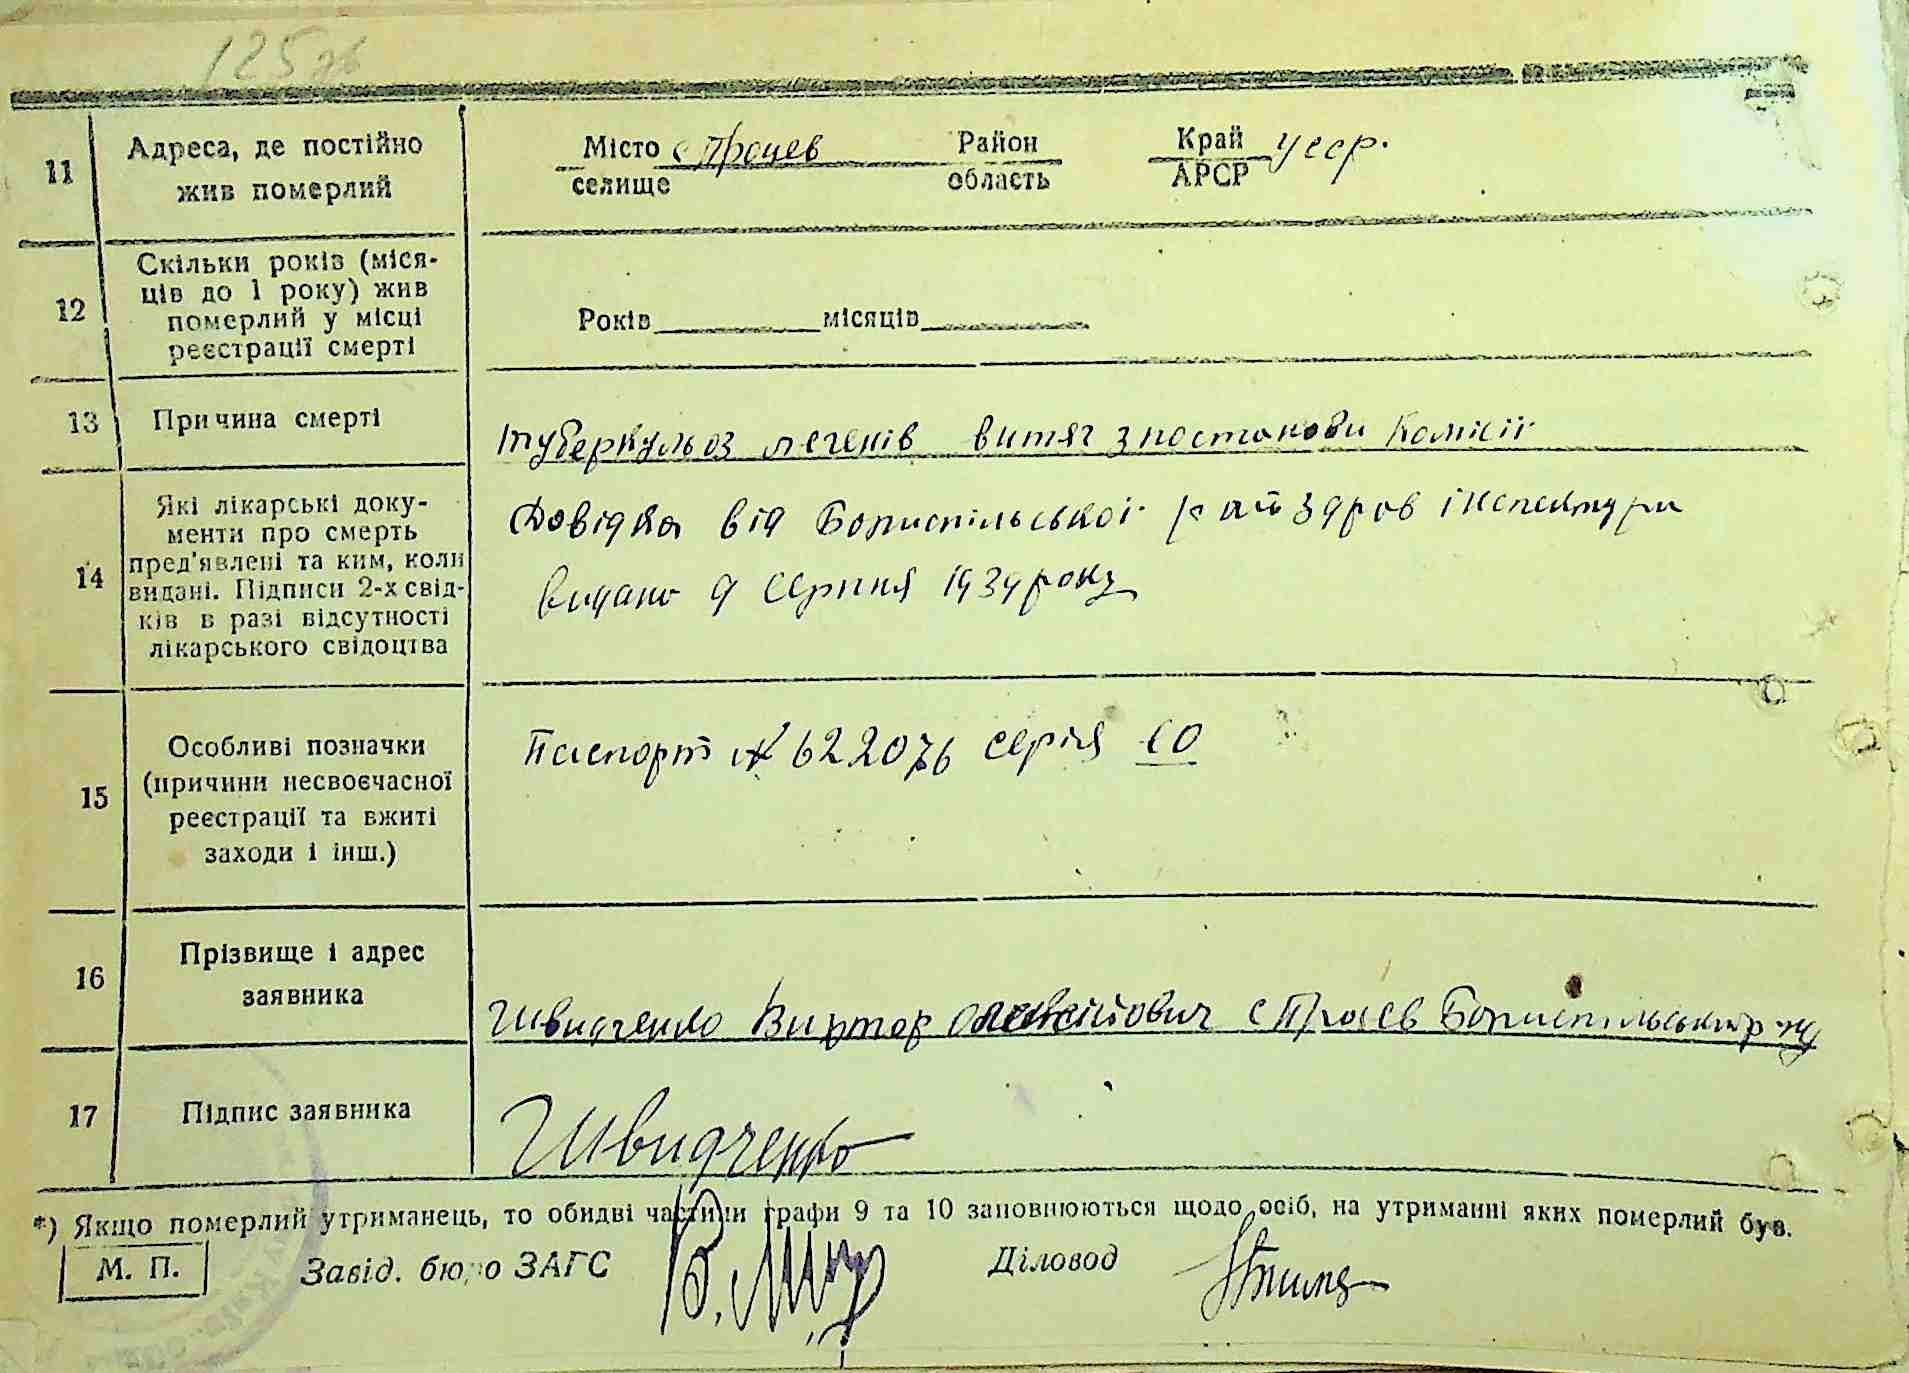 125 зв
11
Адреса, де постійно
жив померлий
Місто с Процев Район Край УССР.
селище область АРСР
12
Скільки років (міся-
ців до 1 року) жив
померлий у місці
реєстрації смерті
Років місяців
13
Причина смерті
туберкульоз легенів витяг з постанови Комісії
14
Які лікарські доку-
менти про смерть
пред'явлені та ким, коли
видані. Підписи 2-х свід-
ків в разі відсутності
лікарського свідоцтва
Довідка від Бориспільської райздрав інспектури
видано 9 серпня 1939 року
15
Особливі позначки
(причини несвоєчасної
реєстрації та вжиті
заходи і інш.)
Паспорт № 622076 серія ЕО
16
Прізвище і адрес
заявника
Швидченко Виктор с Процев Бориспільськ р-ну
17
Підпис заявника
Швидченко
*) Якщо померлий утриманець, то обидві частини графи 9 та 10 заповнюються щодо осіб, на утриманні яких померлий був.
М. П.
Завід. бюро ЗАГС
Діловод